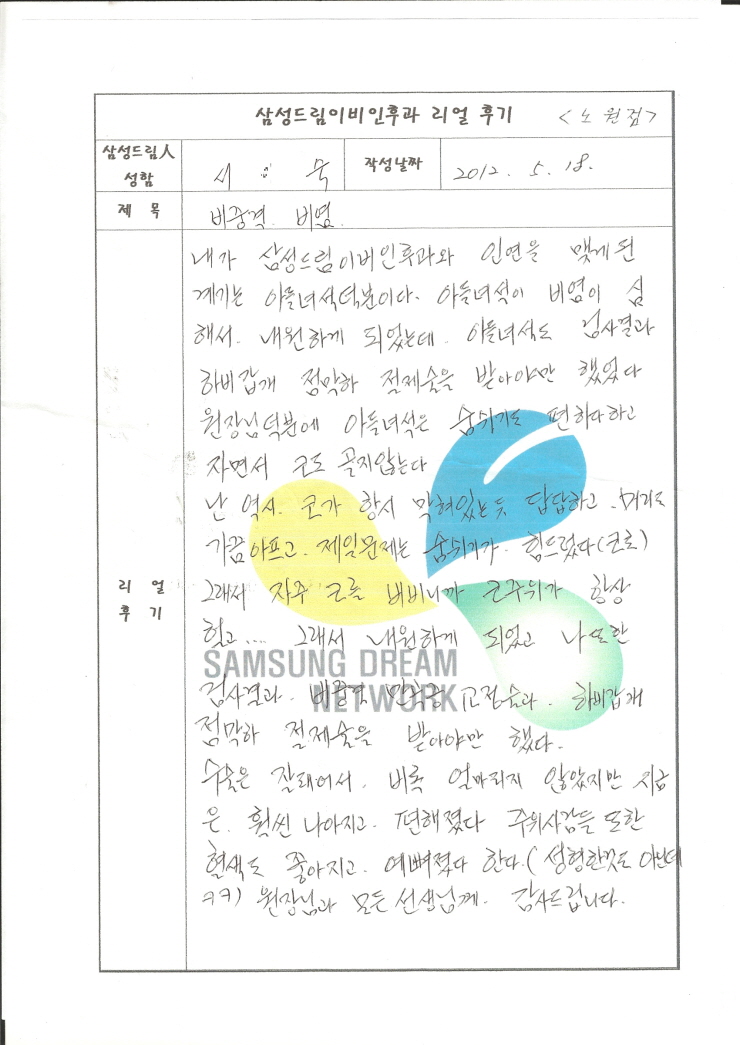 삼성드림이비인후과 리얼 후기 <노원점>
삼성드림人 성함 서 : 숙 작성날짜 2012. 5. 18.
제 목 비중격. 비염.
리 얼 후 기
내가 삼성드림이비인후과와 인연을 맺게된
계기는 아들녀석덕분이다. 아들녀석이 비염이 심
해서. 내원하게 되었는데. 아들녀석도 검사결과
하비갑개 점막하 절제술을 받아야만 했었다
원장님덕분에 아들녀석은 숨쉬기도 편하다하고
자면서 코도 골지않는다
난 역시. 코가 항시 막혀있는듯 답답하고. 머리도
가끔아프고. 제일문제는 숨쉬기가. 힘드렀다(코로)
그래서 자주 코를 비비니까 코주위가 항상
헐고.... 그래서 내원하게 되었고 나또한
검사결과. 비중격 만곡증 교정술과. 하비갑개
점막하 절제술을 받아야만 했다.
수술은 잘돼어서. 비록 얼마되지 않았지만 지금
은. 훨씬 나아지고. 편해졌다 주위사람들 또한
혈색도 좋아지고. 예뻐졌다 한다.(성형한것도 아닌데
ㅋㅋ) 원장님과 모든선생님께. 감사드립니다.
SAMSUNG DREAM
NETWORK